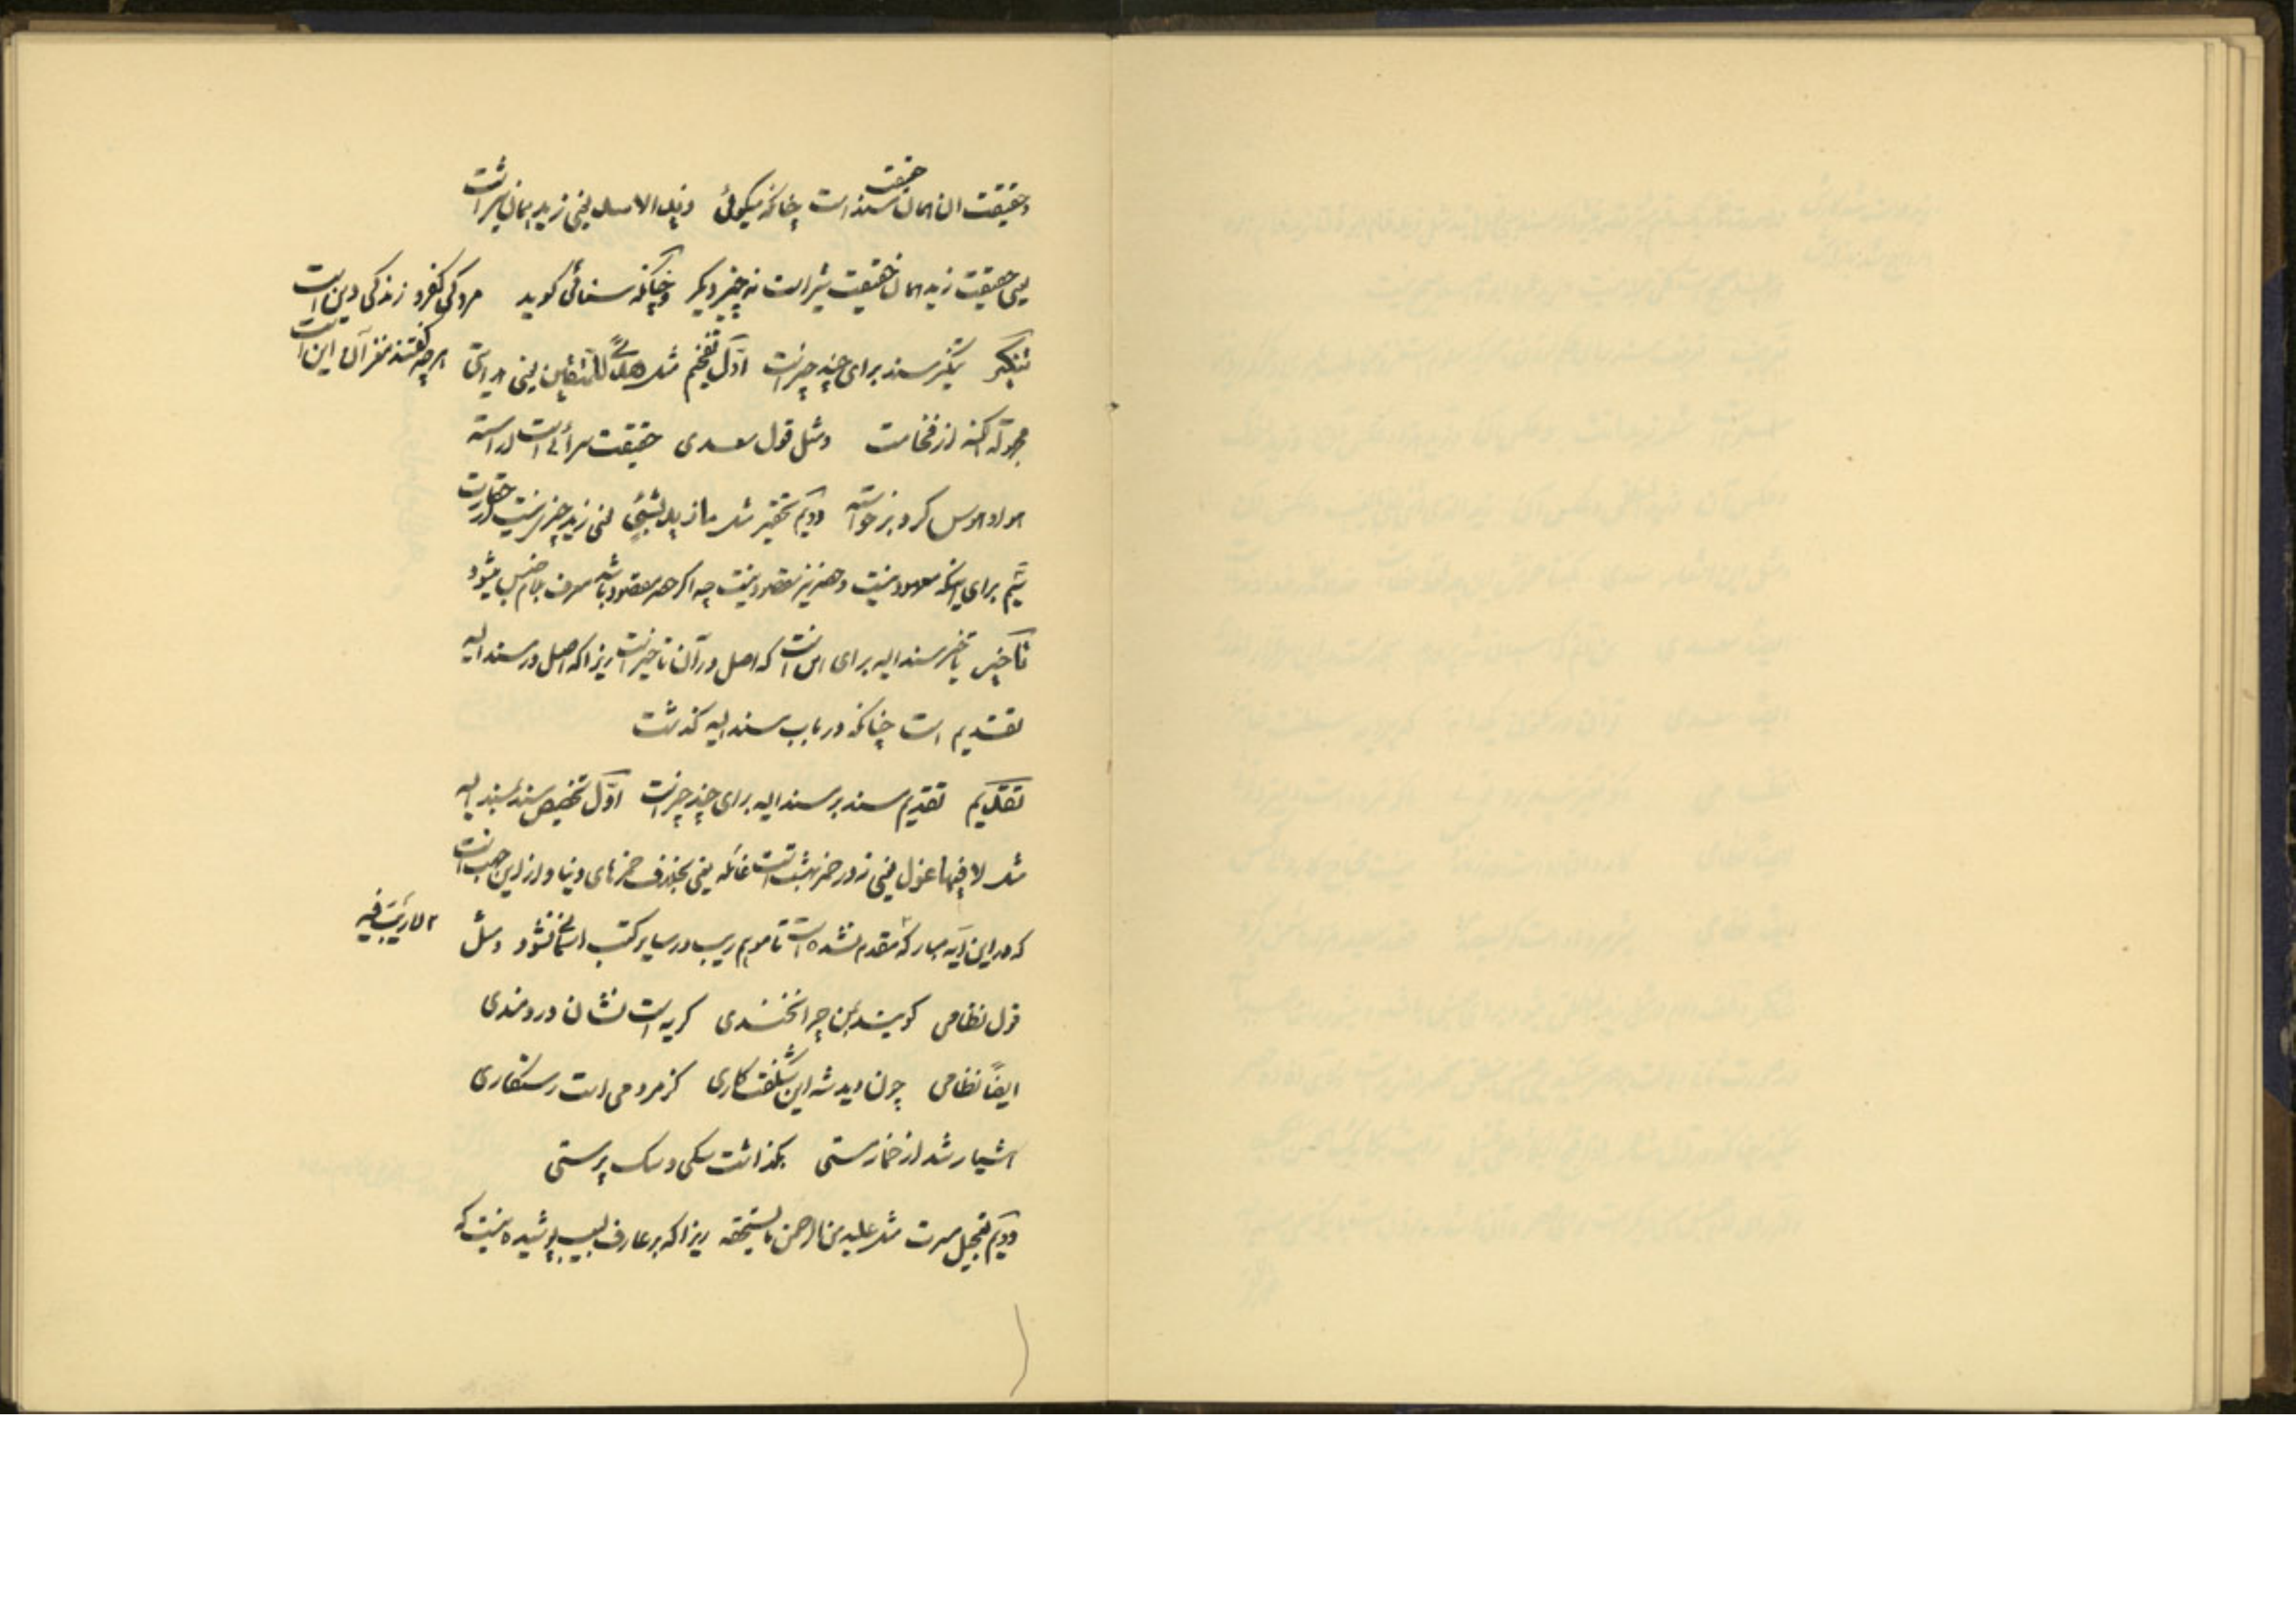 و حقیقت آن همان حقیقت مسند است چنانکه میگوئی و زید الاسد یعنی زید همان شیر است
یعنی حقیقت زید همان حقیقت شیر است نه چیز دیگر و چنانکه سنائی گوید مردگی کفر و زندگی دین است
هر چه گفتند مغز آن این است
تنکیر تنکیر مسند برای چند چیز است اول تفخیم مثل هدًی للمتقین یعنی هدایتی
مجهولة الکنه از فخامت و مثل قول سعدی حقیقت سرائی است آراسته
هوا و هوس گرد برخواسته دویم تحقیر مثل ما زید بشیٔ یعنی زید چیزی نیست از حقارت
سیم برای اینکه معهود نیست و حصر نیز مقصود نیست چه اگر حصر مقصود باشد معرف بلام جنس میشود
تأخیر تأخیر مسند الیه برای این است که اصل در آن تأخیر است زیرا که اصل در مسند الیه
تقدیم است چنانکه در باب مسند الیه گذشت
تقدیم تقدیم مسند بر مسند الیه برای چند چیز است اول تخصیص مسند بمسند الیه
مثل لا فیها غول یعنی نه در خمر بهشت است غائله یعنی بخلاف خمرهای دنیا و از این جهت است
که در این آیه مبارکه مقدم نشده است تا موهم ریب در سایر کتب آسمانی نشود و مثل
۲ لا ریب فیه
قول نظامی گویند بمن چرا نخندی گریه است نشان دردمندی
ایضاً نظامی چون دید شه این شگفت کاری کز مردمی است رستگاری
هشیار شد از خمار مستی بگذاشت سگی و سگ پرستی
دویم تعجیل مسرت مثل علیه من الرحمن ما یستحقه زیرا که بر عارف لبیب پوشیده نیست که